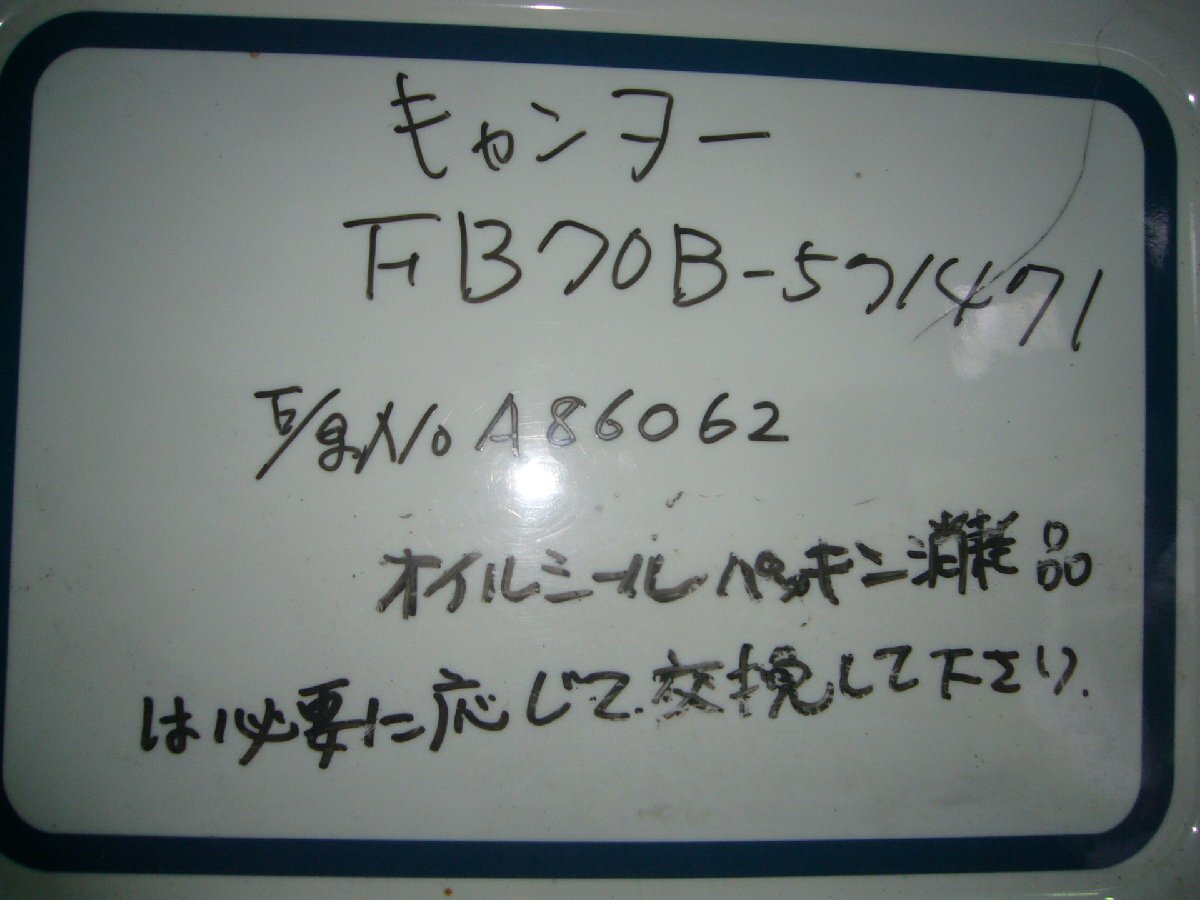 キャンター
FB70B-571471
E/g No A86062
オイルシールパッキン消耗品
は必要に応じて交換して下さい.